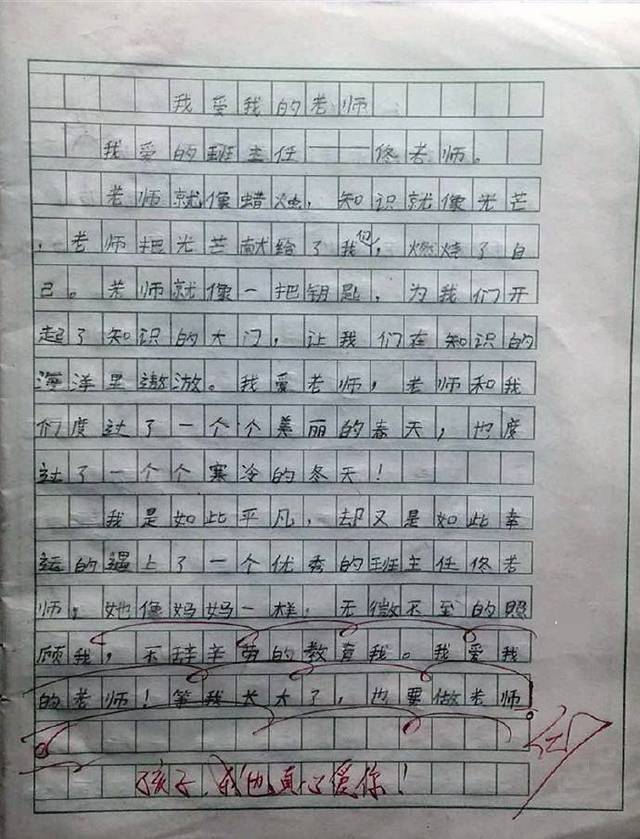 我爱我的老师
我爱的班主任——佟老师。
老师就像蜡烛，知识就像光芒
，老师把光芒献给了我们，燃烧了自
己。老师就像一把钥匙，为我们开
起了知识的大门，让我们在知识的
海洋里遨游。我爱老师，老师和我
们度过了一个个美丽的春天，也度
过了一个个寒冷的冬天！
我是如此平凡，却又是如此幸
运的遇上了一个优秀的班主任佟老
师，她像妈妈一样，无微不至的照
顾我，不辞辛劳的教育我。我爱我
的老师！等我长大了，也要做老师
。
孩子，我也真心爱你！